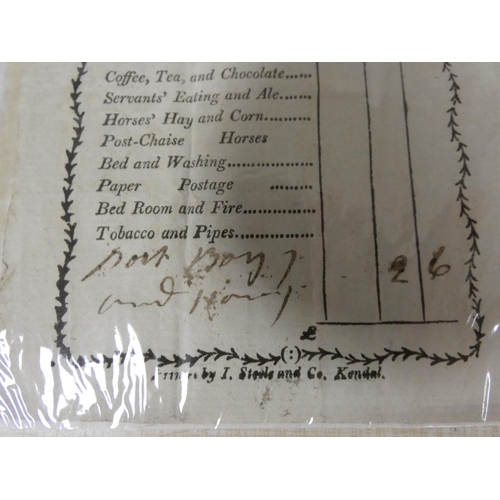 Coffee, Tea, and Chocolate......
Servants' Eating and Ale.......
Horses' Hay and Corn..........
Post-Chaise Horses
Bed and Washing................
Paper Postage ..............
Bed Room and Fire..............
Tobacco and Pipes...............
Post Boy 2 6
and
£
(:)
Printed by I. Steele and Co. Kendal.